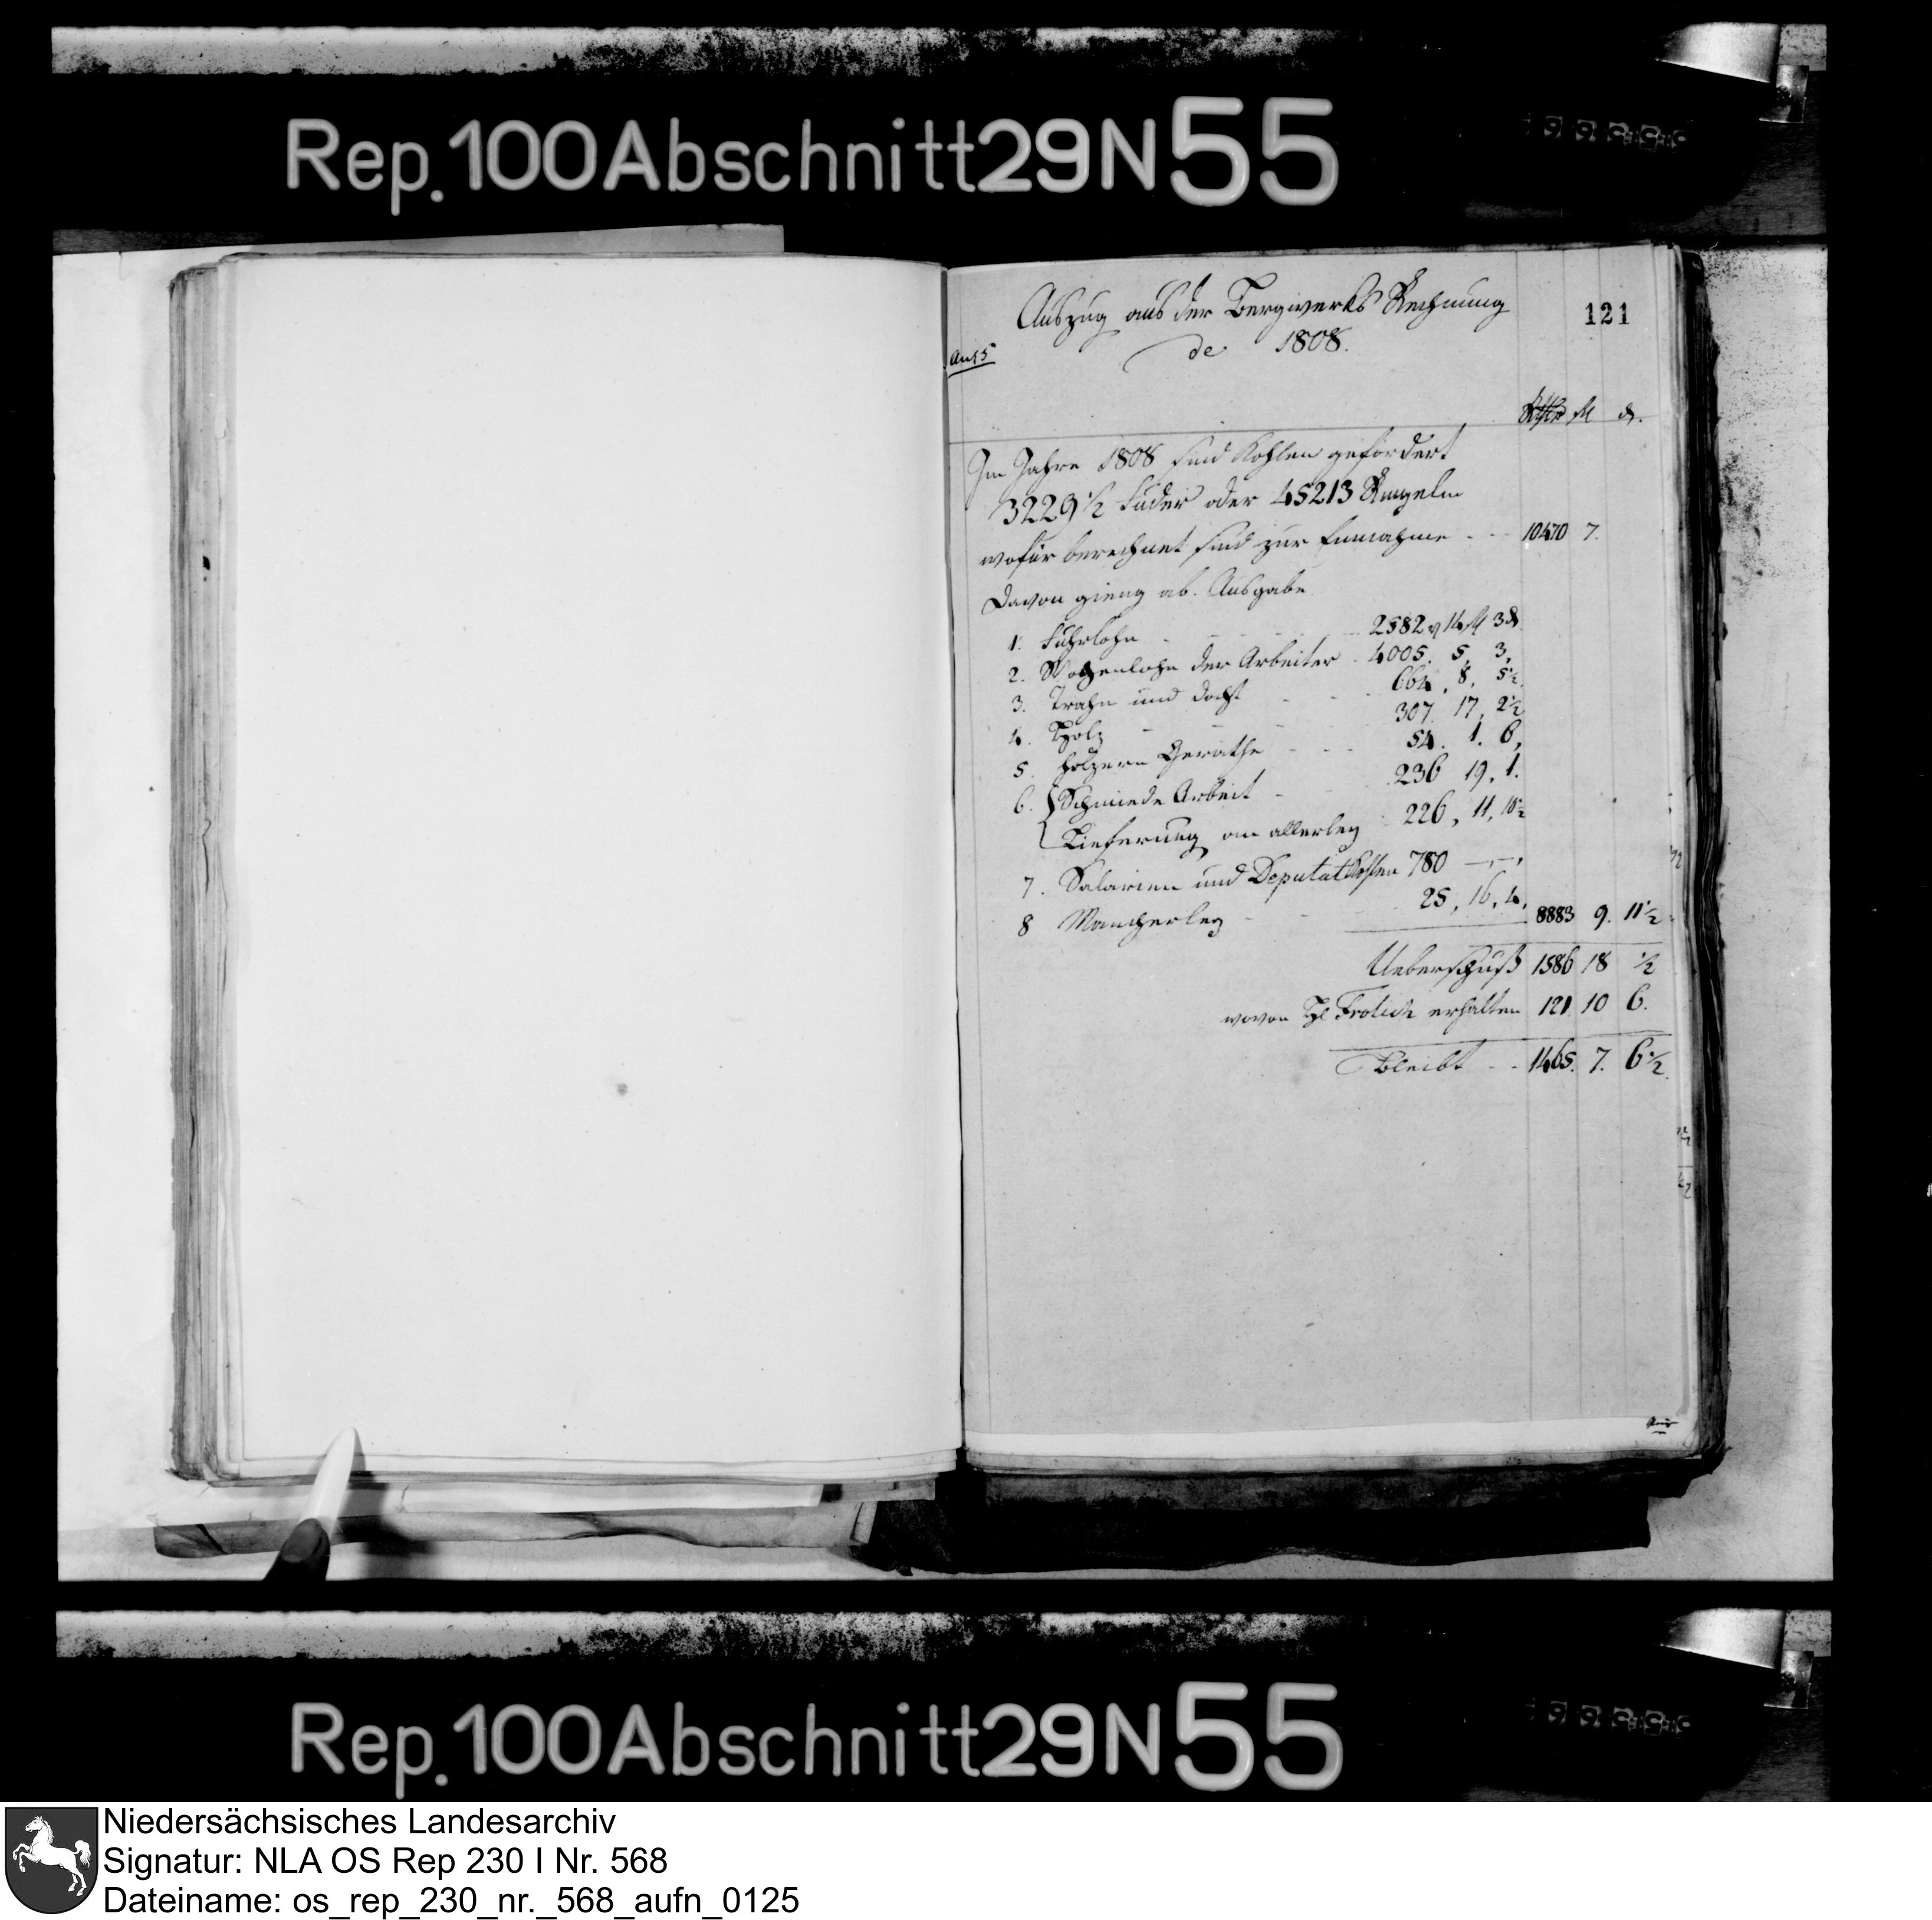 Rep.100Abschnitt29N55
121
Auszug aus der Bergwerks Rechnung
de 1808.
Im Jahre 1808 sind Kohlen gefördert
3229 1/2 Fuder oder 45213 Ringeln
wofür berechnet sind zur Einnahme - - - 10470 7.
Davon gieng ab. Ausgabe
1. Fuhrlohn - - - 2582 14 3
2. Wochenlohn der Arbeiter - 4005. 5. 3.
3. Trahn und Docht - - - 664. 8. 5 1/2
4. Holz - - - 307. 17. 2 1/2
5. Holzern Gerathe - - - 54. 1. 6.
6. Schmiede Arbeit - - 236 19. 1.
Lieferung an allerley - 226. 11. 10 1/2
7. Salarien und Deputat Kohlen 780 — . — .
8 Mancherley - - - 25. 16. 4. 8883 9. 11 1/2
Ueberschuß 1586 18 1/2
wovon Frolich erhalten 121. 10 6.
Bleibt - - 1465. 7. 6 1/2
Rep.100Abschnitt29N55
Niedersächsisches Landesarchiv
Signatur: NLA OS Rep 230 I Nr. 568
Dateiname: os_rep_230_nr._568_aufn_0125